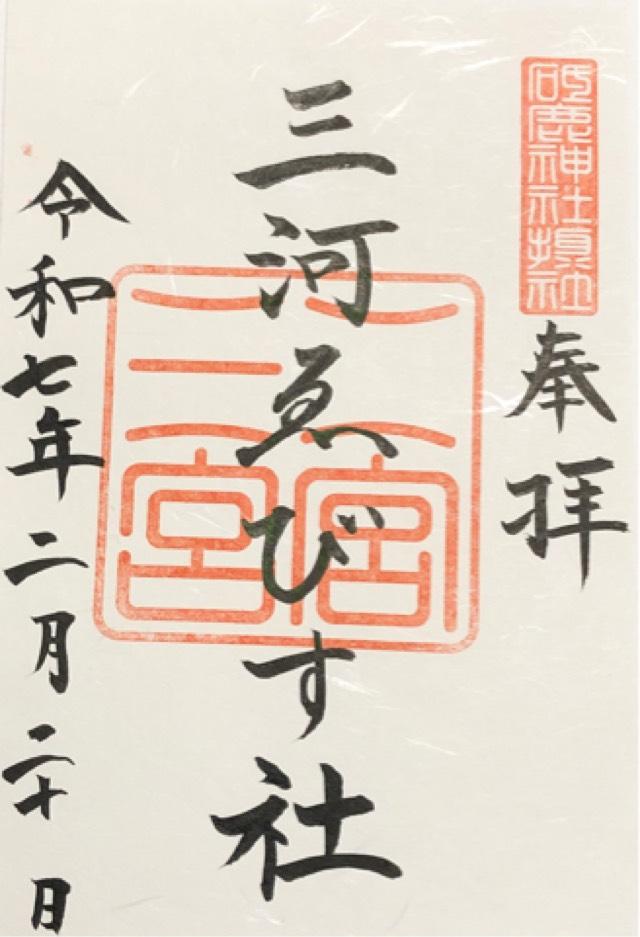 砥鹿神社摂社
奉拝
三河ゑびす社
二宮
三宮
令和七年二月二十日